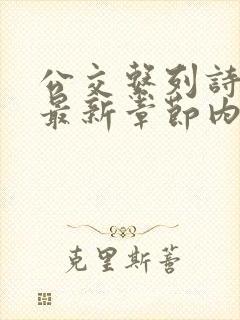 公交系列詩
最新章節內
克里斯蒂